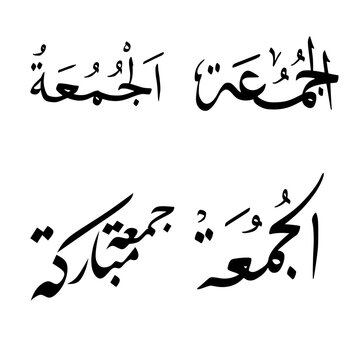 الجُمُعَة
اَلْجُمُعَةُ
الجُمُعَة
جمعة مباركة